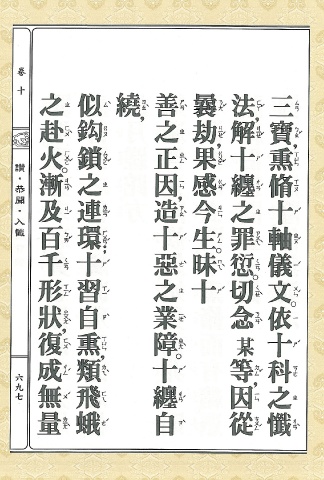 三寶，熏脩十軸儀文。依十科之懺
法，解十纏之罪愆。切念 某 等，因從
曩劫，果感今生。昧十
善之正因，造十惡之業障。十纏自
繞，
似鈎鎖之連環；十習自熏，類飛蛾
之赴火。漸及百千形狀，復成無量
卷十
讚．恭聞．入懺
六九七